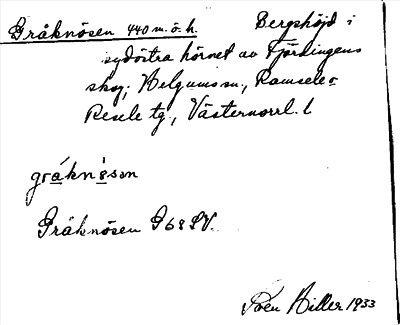 Gråknösen 440 m.ö.h. Bergshöjd i
sydöstra hörnet av Fjärdingens
skog, Helgums sn, Ramsele o.
Resele tg., Västernorrl. l
gråknösən
Gråknösen G68 SV.
Sven Hiller 1933